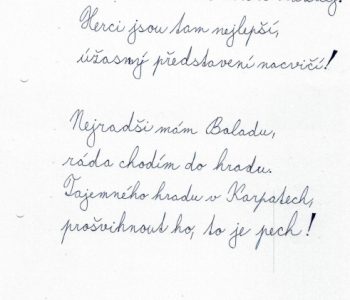 Herci jsou tam nejlepší,
úžasný představení nacvičí!
Nejradši mám Baladu,
ráda chodím do hradu.
Tajemného hradu v Karpatech,
prošvihnout ho, to je pech!